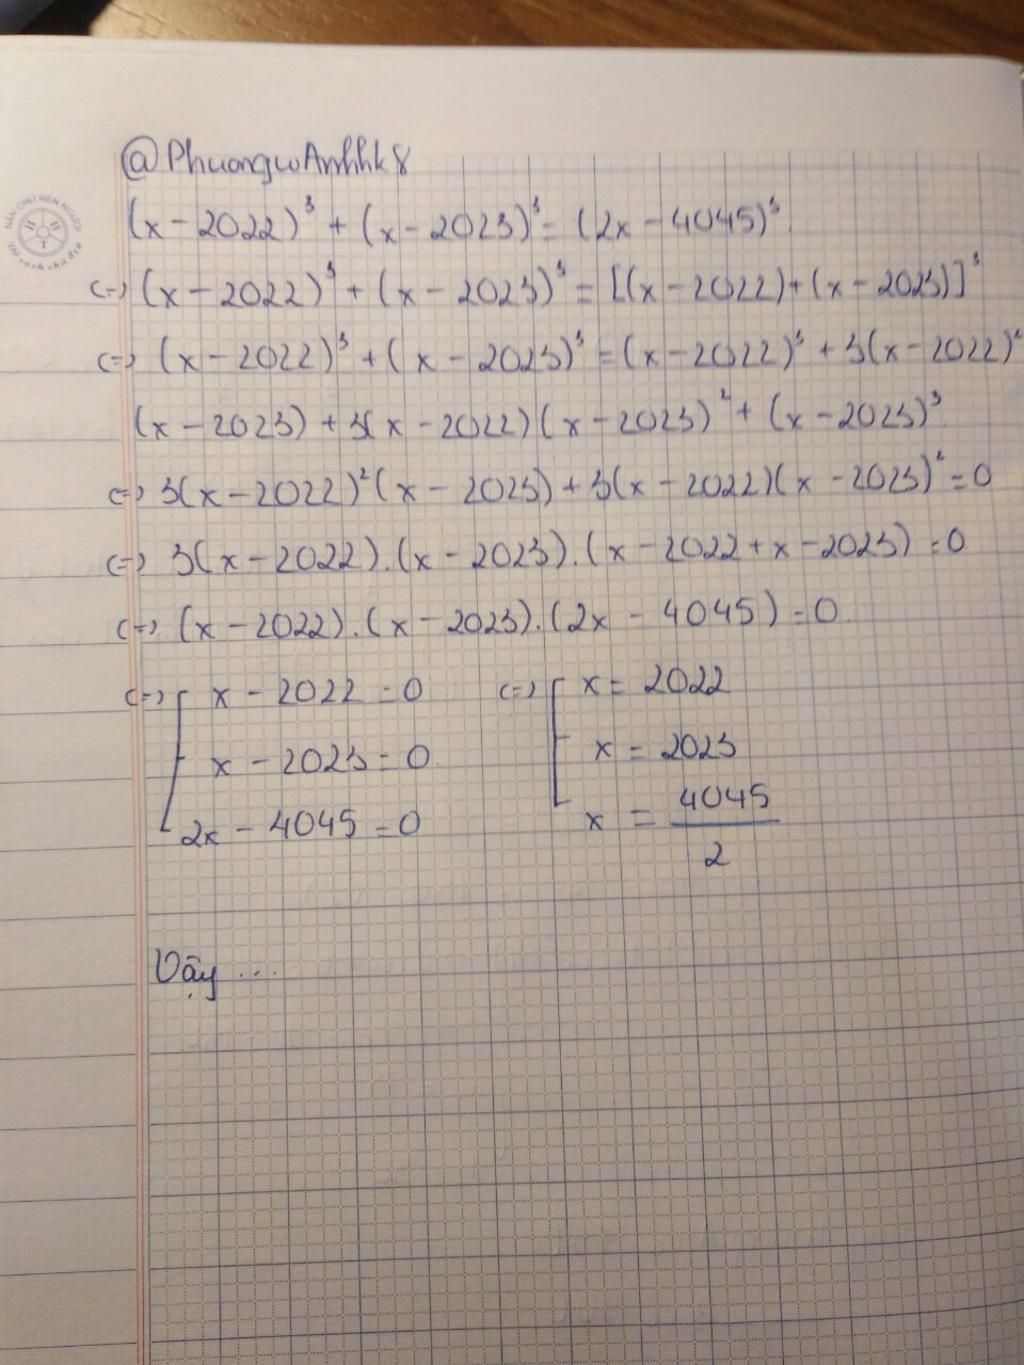 @PhuongwAnhhk8
(x-2022)³ + (x-2023)³ = (2x-4045)³
(=) (x-2022)³ + (x-2023)³ = [(x-2022)+(x-2023)]³
(=) (x-2022)³ + (x-2023)³ = (x-2022)³ + 3(x-2022)²
(x-2023) + 3(x-2022)(x-2023)² + (x-2023)³
(=) 3(x-2022)²(x-2023) + 3(x-2022)(x-2023)² = 0
(=) 3(x-2022).(x-2023).(x-2022+x-2023) = 0
(=) (x-2022).(x-2023).(2x-4045) = 0.
(=) [ x-2022 = 0 (=) [ x = 2022
x-2023 = 0. x = 2023
2x-4045 = 0 x = 4045/2
Vậy ...